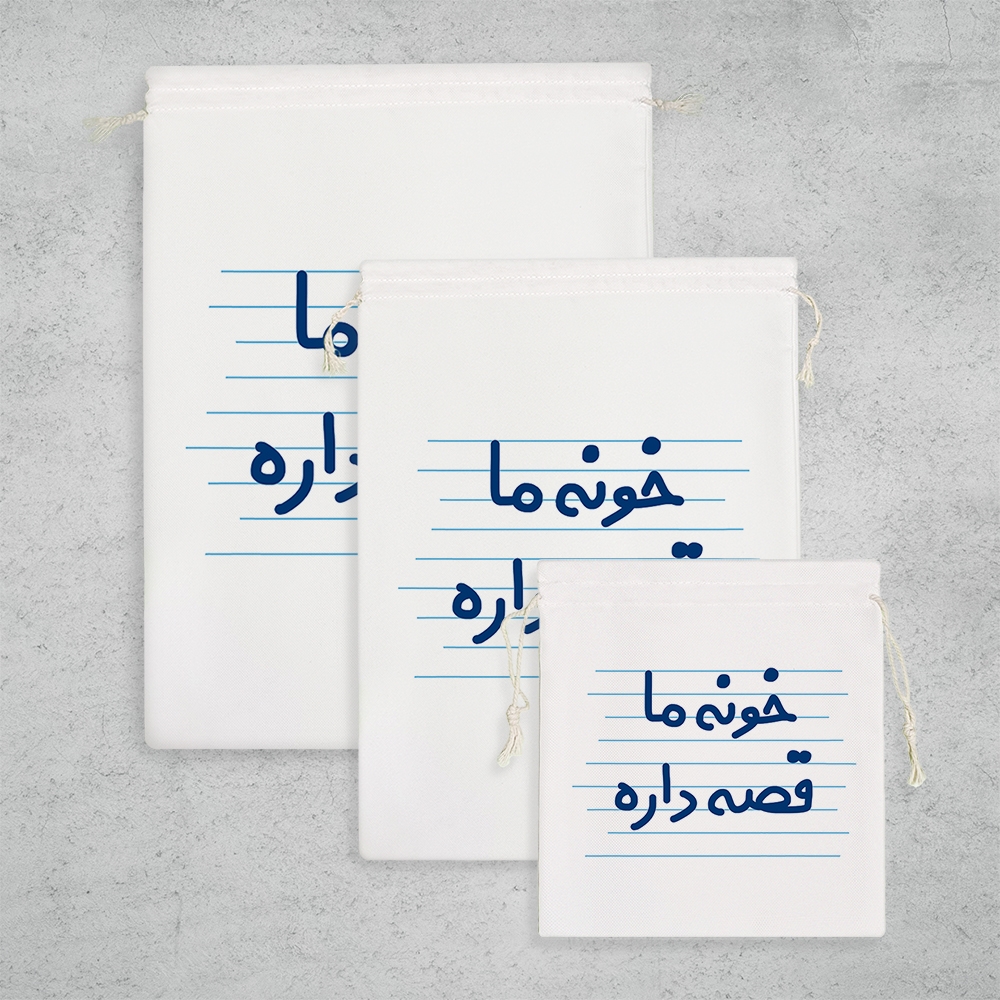 ما
داره
خونه ما
داره
خونه ما
قصه داره